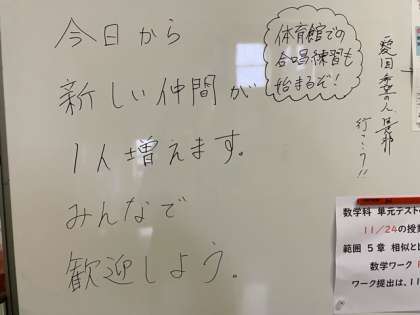 今日から
新しい仲間が
1人増えます。
みんなで
歓迎しよう。
体育館での
合唱練習も
始まるぞ!
希望の人
行こう!!
数学科 単元テスト
11/24の授
範囲 5章 相似と
数学ワーク
ワーク提出は、11